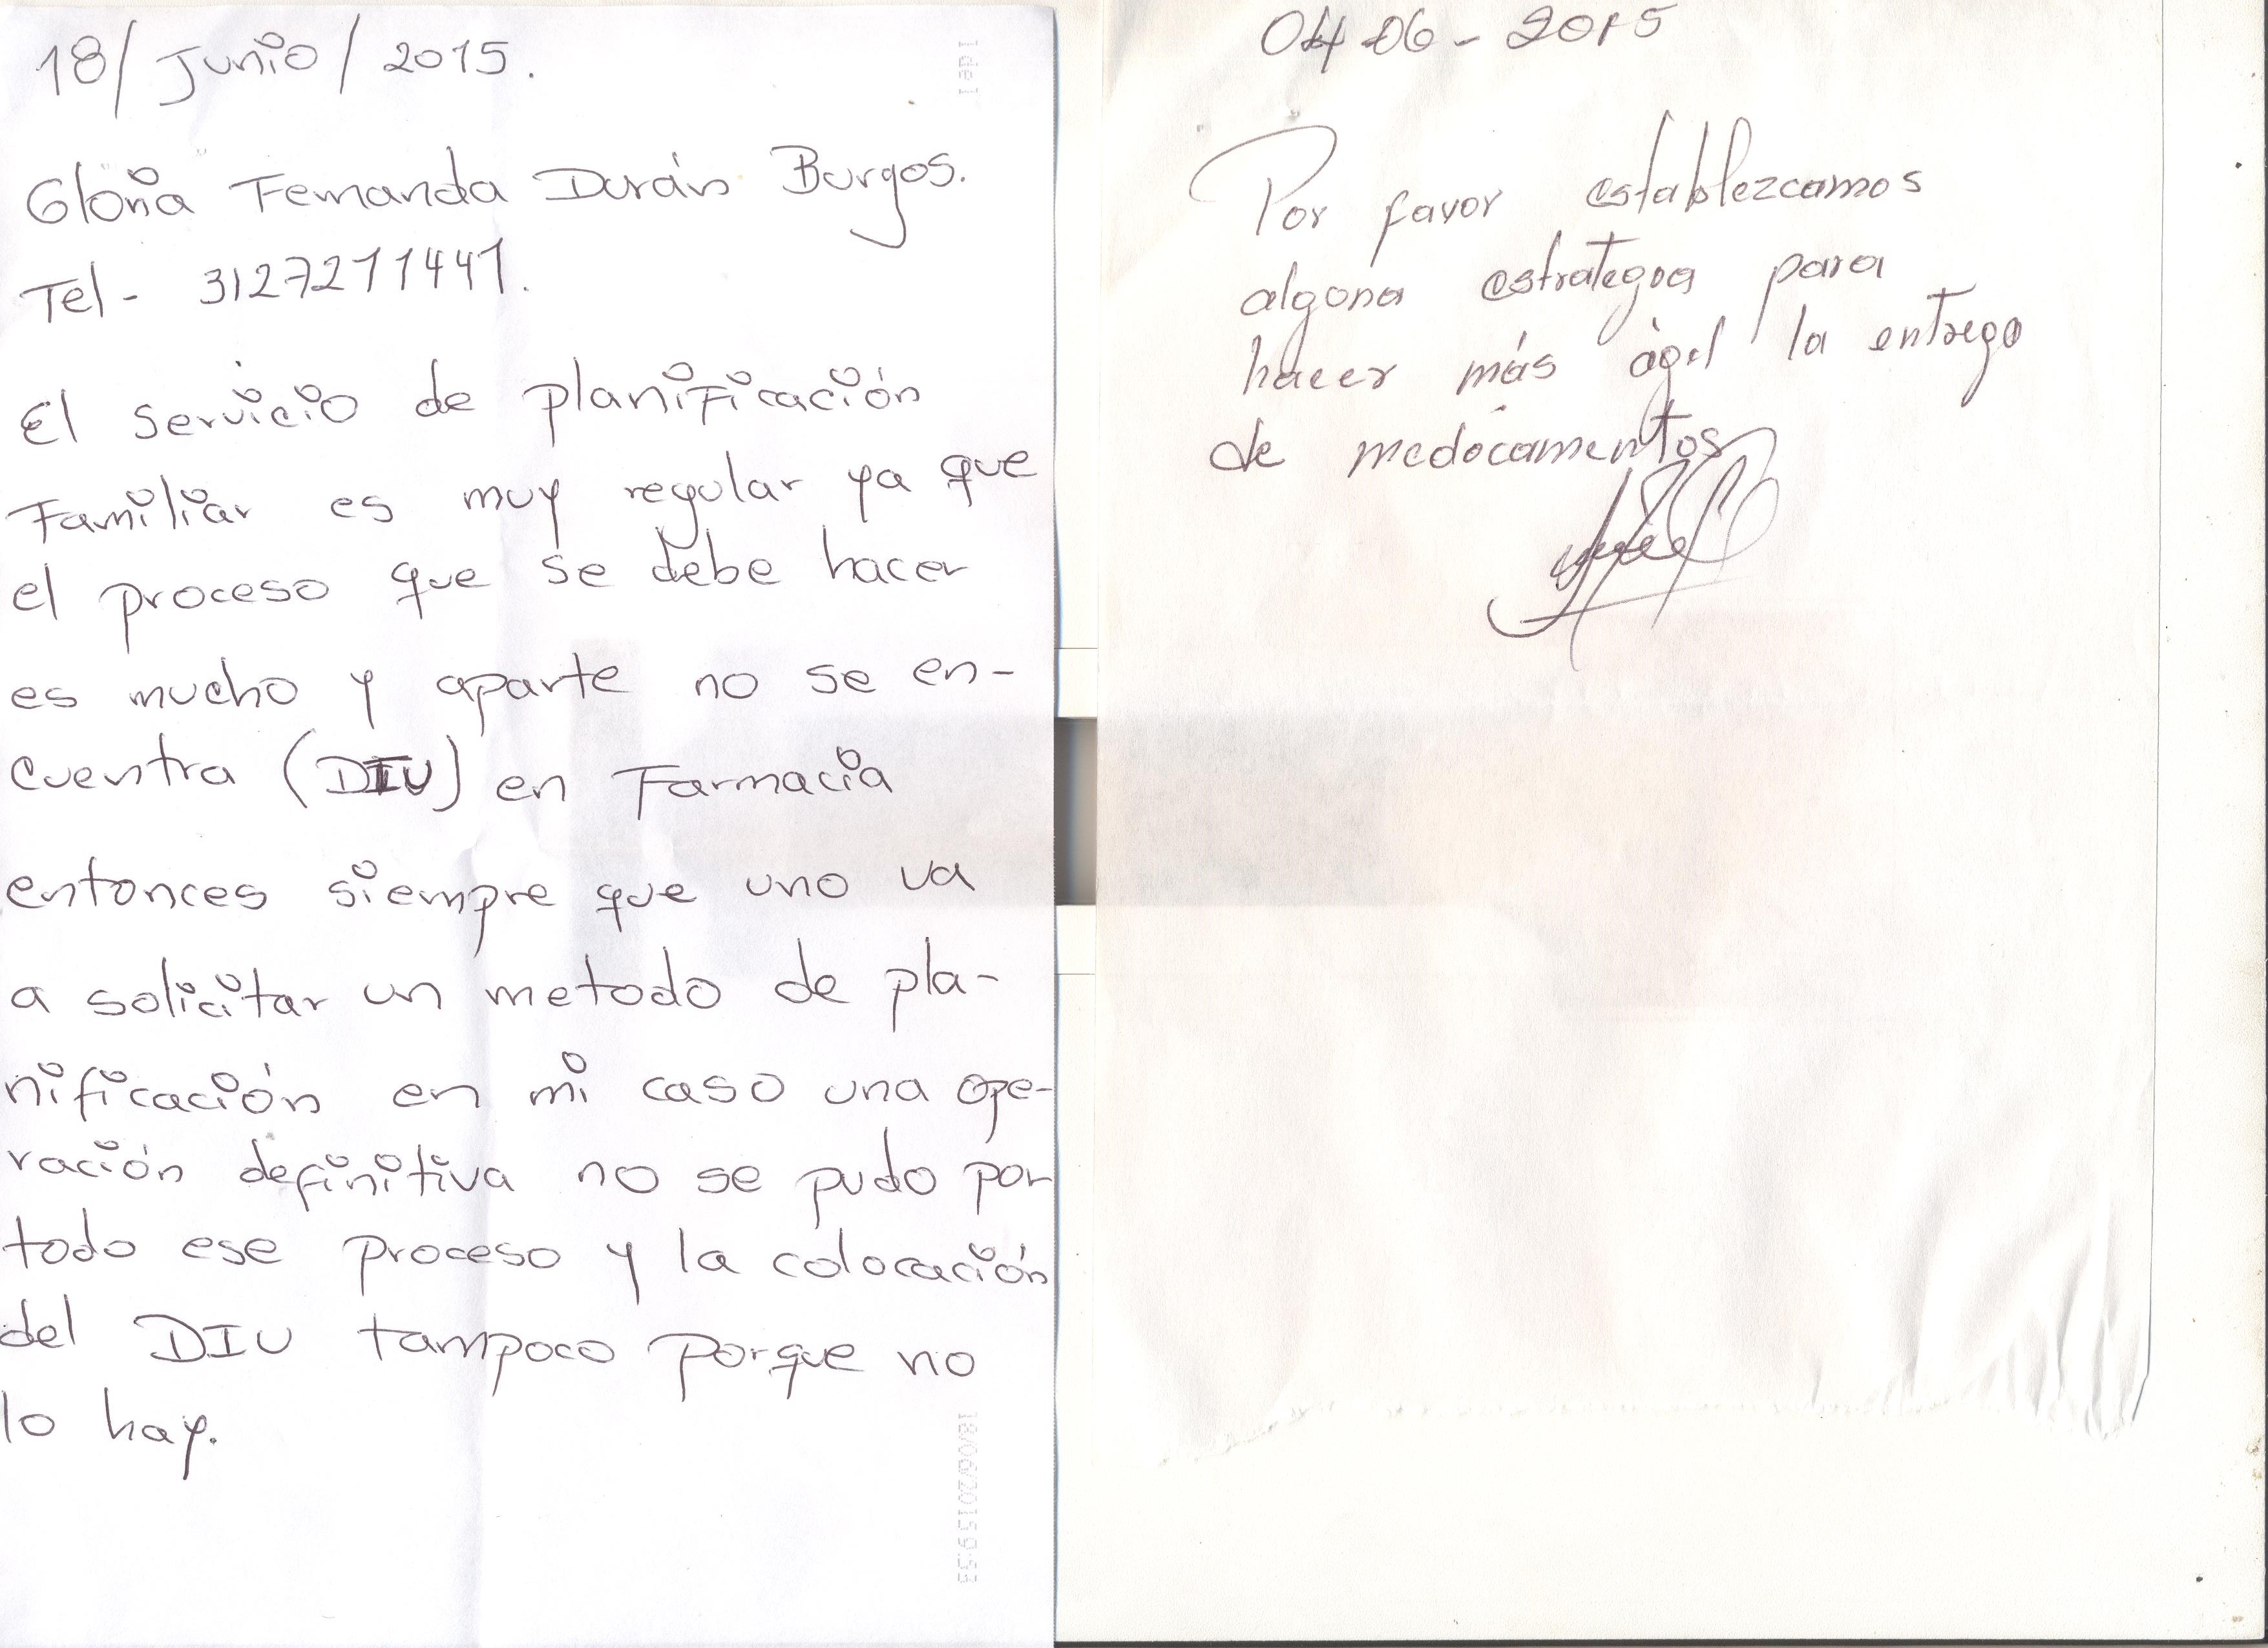 18/Junio/2015.
Gloria Fernanda Durán Burgos.
Tel- 3127211441.
El servicio de planificación
Familiar es muy regular ya que
el proceso que se debe hacer
es mucho y aparte no se en-
cuentra (DIU) en Farmacia
entonces siempre que uno va
a solicitar un metodo de pla-
nificación en mi caso una ope-
ración definitiva no se pudo por
todo ese proceso y la colocación
del DIU tampoco porque no
lo hay.
1 de 1
18/06/2015 9:53
04-06-2015
Por favor establezcamos
alguna estrategia para
hacer más ágil la entrega
de medicamentos